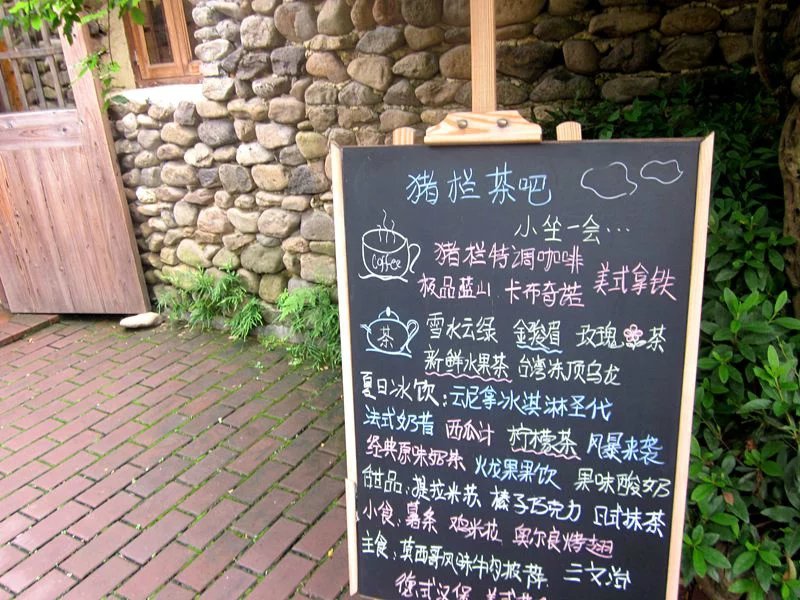 猪栏茶吧
小坐一会…
coffee 猪栏特调咖啡
极品蓝山 卡布奇诺 美式拿铁
茶 雪水云绿 金骏眉 玫瑰茶
新鲜水果茶 台湾冻顶乌龙
夏日冰饮:云尼拿冰淇淋圣代
法式奶昔 西瓜汁 柠檬茶 风暴来袭
经典原味奶茶 火龙果果饮 果味酸奶
甜品:提拉米苏 榛子巧克力 日式抹茶
小食:薯条 鸡米花 奥尔良烤翅
主食:莫西哥风味牛肉披萨 三文治
德式汉堡 美式